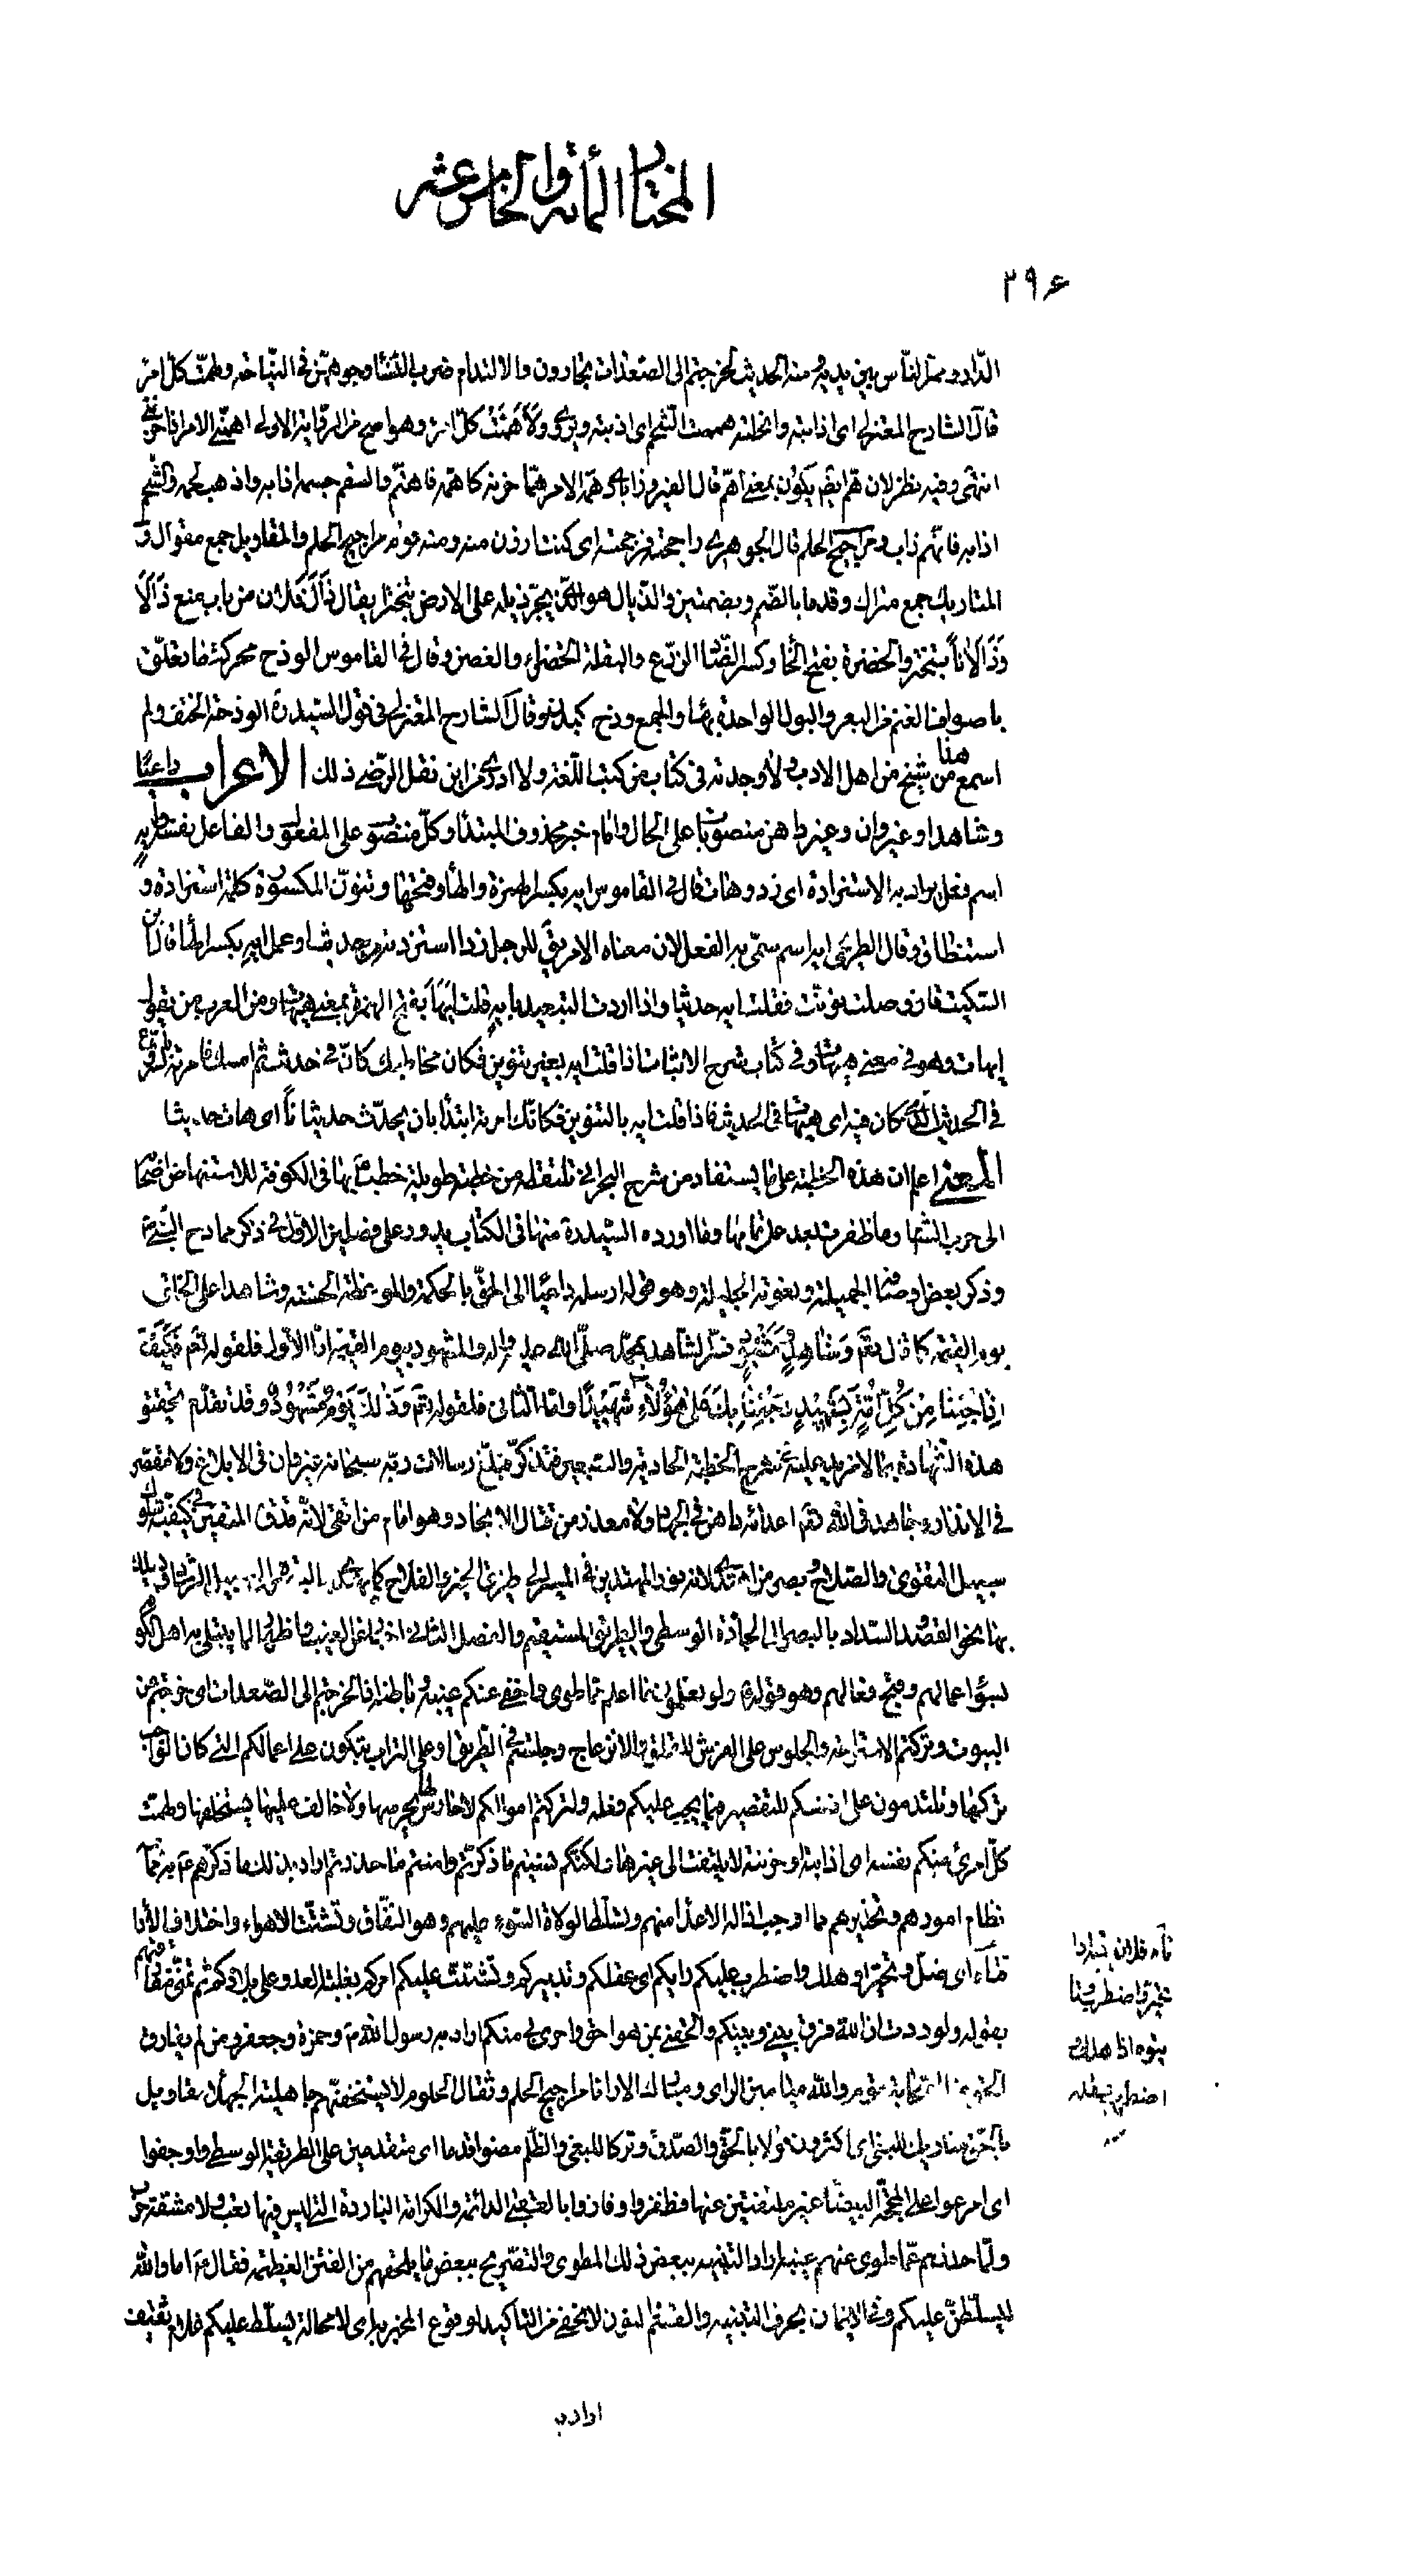 المختار المأة والخامس عشر
٢٩۶
الدّار وممرّ النّاس بين يديه ومنه الحديث لخرجتم الى الصّعدات تجارون والالتدام ضرب النّساء وجوههنّ فى النّياحة وهمّت كلّ امرء
قال الشارح المعتزلى اى اذابته وانحلته هممت الشّحم اى اذبته ويروى ولأهمّت كلّ امرء وهو اصحّ من الرّواية الاولى اهمّنى الامر اى احزننى
انتهى وفيه نظر لان همّ ايضا يكون بمعنى اهمّ قال الفيروزابادى همّه الامر همّا حزنه كاهمّه فاهتمّ والسقم جسمه اذابه واذهب لحمه والشّحم
اذابه فانهمّ ذاب ومراجيح الحلم قال الجوهرى راجحته فرجحته اى كنت ارزن منه ومنه قوم مراجيح الحلم والمقاويل جمع مقوال و
المتاريك جمع متراك وقدما بالضّم وبضمتين والذّيال هو الّذى يجرّ ذيله على الارض تبخترا يقال ذال فلان من باب منع ذألا
وذألانا تبختر والخضرة بفتح الخاء وكسر الضّاد الزّرع والبقلة الخضراء والغصن وقال فى القاموس الوذح محركة ما تعلّق
باصواف الغنم من البعر والبول الواحدة بهاء والجمع وذح كبدن وقال الشارح المعتزلى فى قول السّيد ره الوذحة الخنفساء ولم
اسمع هذا من شيخ من اهل الادب ولا وجدته فى كتاب من كتب اللّغة ولا ادرى من اين نقل الرّضى ذلك الاعراب داعيًا
وشاهدا وغير وان وغير واهن منصوبات على الحال وامام خبر محذوف المبتدأ وكلّ منصوب على المفعول والفاعل نفسه وايه
اسم فعل يراد به الاستزادة اى زد وهات قال فى القاموس ايه بكسر الهمزة والهاء وفتحها وتنوّن المكسورة كلمة استزادة و
استنطاق وقال الطريحى ايه اسم سمّى به الفعل لان معناه الامر يق للرجل زد اذا استزدته من حديث او عمل ايه بكسر الهاء قال ابن
السّكيت فان وصلت نوّنت فقلت ايه حديثا واذا اردت التبعيد بايه قلت ايها بفتح الهمزة بمعنى هيهات ومن العرب من يقول
ايهات وهو فى معنى هيهات وفى كتاب شرح الابيات اذا قلت ايه بغير تنوين فكان مخاطبك كان فى حديث ثم امسك فامرته بالشروع
فى الحديث الّذى كان فيه اى هيهات فى الحديث فاذا قلت ايه بالتنوين فكانك امرته ابتداء بان يحدّث حديثا ما اى هات حديثا
المعنى اعلم ان هذه الخطبة على ما يستفاد من شرح البحرانى ملتقطة من خطبة طويلة خطب بها فى الكوفة للاستنهاض اصحابه
الى حرب الشام وما ظفر بعد على تمامها وما اورده السّيد ره منها فى الكتاب يدور على فصلين الاوّل فى ذكر ممادح النّبى ص
وذكر بعض اوصافه الجميلة ونعوته الجليلة وهو قوله ارسله داعيًا الى الحقّ بالحكمة والموعظة الحسنة وشاهدا على الخلق
يوم القيمة كما قال تعم وشاهد ومشهود فسّر الشّاهد بمحمّد صلّى الله عليه واله والمشهود بيوم القيمة امّا الاوّل فلقوله تعم فكيف
اذا جئنا من كلّ امّة بشهيد وجئنا بك على هؤلاء شهيدًا وامّا الثانى فلقوله تعم وذلك يوم مشهود وقد تقدّم تحقيق
هذه الشّهادة بما لا مزيد عليه فى شرح الخطبة الحادية والسّبعين فتذكّر فبلّغ رسالات ربّه سبحانه غير وان فى الابلاغ ولا مقصّر
فى الانذار وجاهد فى الله تعم اعدائه غير واهن فى الجهاد ولا معذر من قتال الانجاد وهو امام من اتقى لانّه قدوة المتقين فى كيفيّة سلوك
سبيل التقوى والصّلاح وبصر من اهتدى لانه يقود المهتدين فى المسير الى طريق الخير والفلاح كما يهتدى
بها نحو القصد السّداد بالبصر الى الجادّة الوسطى والطريق المستقيم والفصل الثانى اخبار عن الغيب واظهار لما يبتلى به اهل الكوفة
لسوء اعمالهم وقبح فعالهم وهو قوله ولو تعلمون ما اعلم مما طوى واخفى عنكم غيبه وباطنه اذا لخرجتم الى الصّعدات اى خرجتم من
البيوت وتركتم الاستراحة والجلوس على الفرش للقلق والانزعاج وجلستم فى الطّريق او على التراب تبكون على اعمالكم التى كان الواجب
تركها وتلتدمون على انفسكم للتقصير فيما يجب عليكم فعله ولتركتم اموالكم لا حارس لها يحرسها ولا خالف عليها يستخلفها ولهمّت
كلّ امرئ منكم نفسه اى اذابته او حزنته لا يلتفت الى غيرها ولكنّكم نسيتم ما ذكرتم وامنتم ما حذرتم اراد بذلك ما ذكرهم به مما
نظام امورهم وتحذيرهم مما اوجب ادالة الاعداء منهم وتسلّط الولاة السّوء عليهم وهو النّفاق وتشتّت الاهواء واختلاف الآراء
فتاه اى ضلّ وتحيّر او هلك واضطرب عليكم رايكم اى عقلكم وتدبيركم وتشتّت عليكم امركم بغلبة العدو على بلادكم ثم تمنّى مفارقتهم
بقوله ولوددت انّ الله فرّق بينى وبينكم والحقنى بمن هو احق واحرى لى منكم اراد به رسول الله ص وحمزة وجعفر ومن لم يفارق
الحق من الصّحابة قوم والله ميامين الراى ومبارك الآراء مراجيح الحلم وثقال الحلوم لا يستخفّنهم جاهلية الجهلاء مقاويل
بالحق متاريك للبغى اى اكثرون قولا بالحقّ والصّدق وتركا للبغى والظّلم مضوا قدما اى متقدمين على الطريقة الوسطى واوجفوا
اى اسرعوا على المحجّة البيضاء غير ملتفتين عنها فظفروا وفازوا بالعقبى الدائمة والكرامة الباردة التى ليس فيها تعب ولا مشقة حرب
ولمّا حذرهم عمّا طوى عنهم غيبه اراد التنبيه ببعض ذلك المطوى والتصريح ببعض ما يلحقهم من الفتن العظيمة فقال ع اما والله
ليسلّطنّ عليكم وفى الاتيان بحرف التنبيه والقسم لنون لا يخفى من التاكيد لوقوع المخبر به اى لا محالة يسلّط عليكم غلام ثقيف
تاه فلان تيها اذا
تحيّر واضطرب وتاه
يتوه اذا هلك و
اضطرب عقله
اراد به